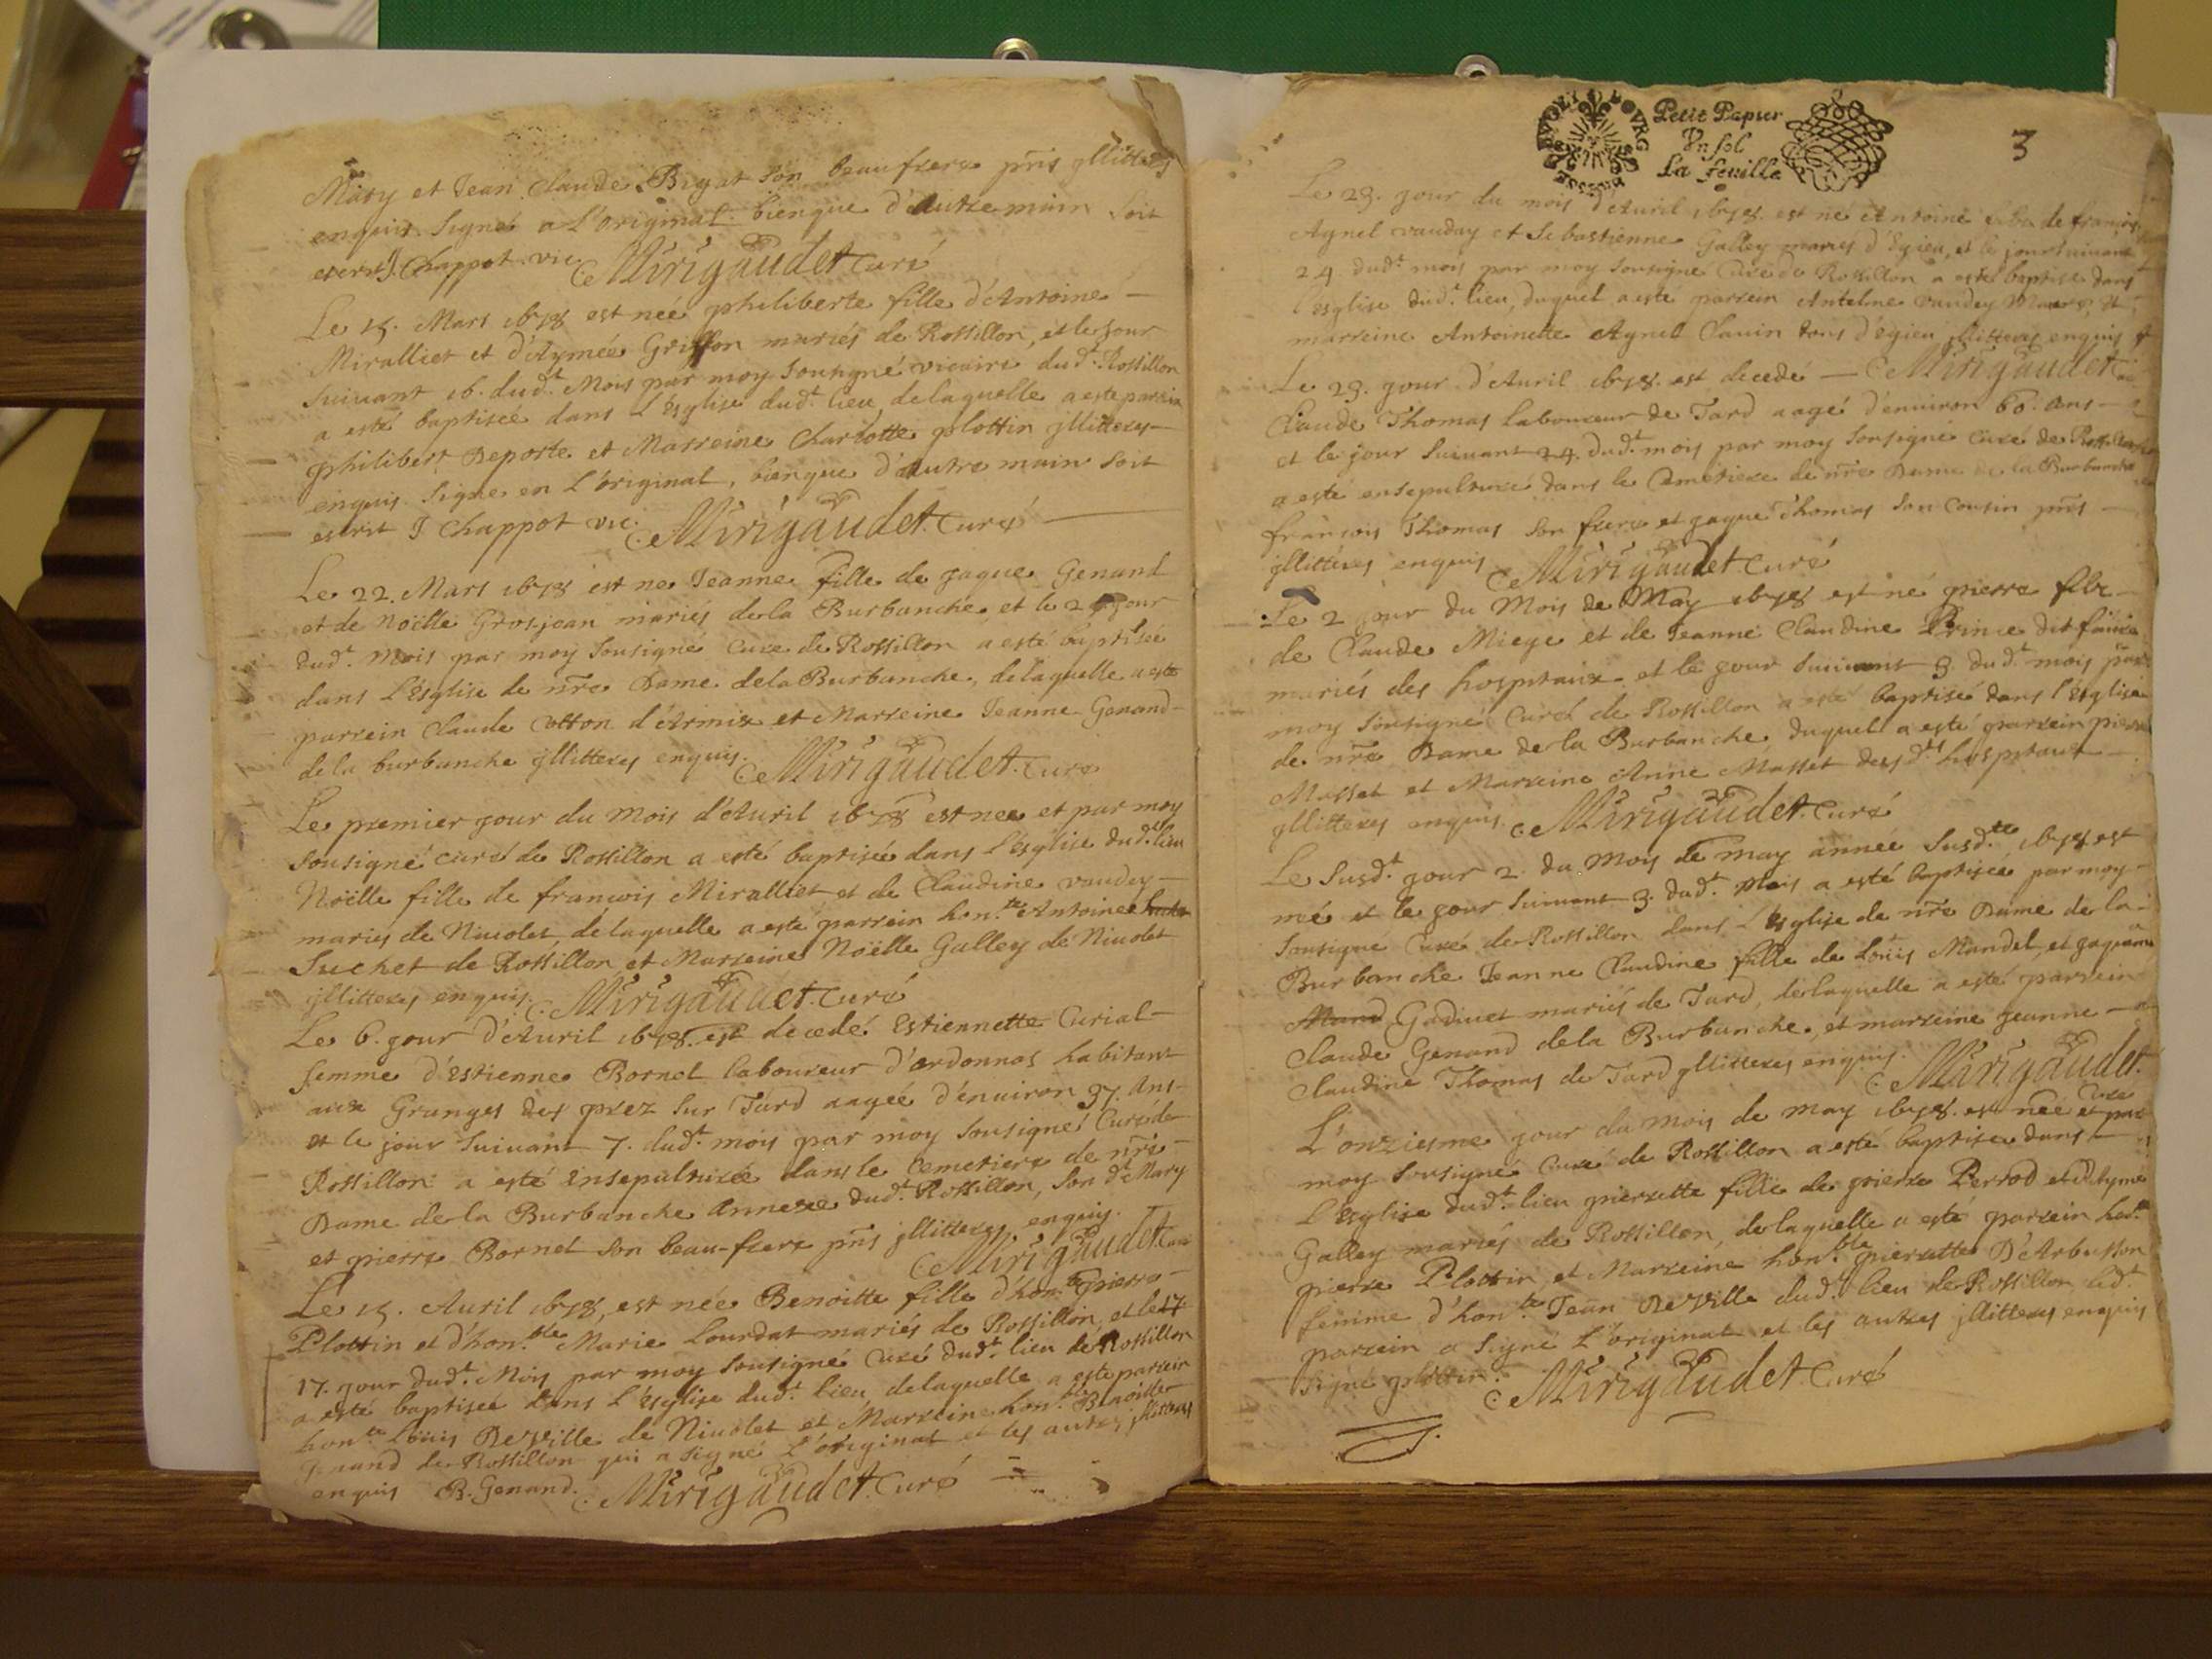 Mary et Jean Claude Bigat son beaufrere pñs jllitteres
enquis. Signé a L'original. bienque d'autre main soit
escrit J. Chappot vic. Mirigaudet Curé
Le 15. Mars 1678 est neé philiberte fille d'Antoine
Miralliet et d'Aymeé Griffon mariés de Rossillon, et le jour
suivant 16. dud.t Mois par moy sousigné vicaire dud.t Rossillon
a esté baptiseé dans L'Esglise dud.t lieu, delaquelle a este parrin
philibert Deporte et Marreine Charlotte plottin jllitteres
enquis. signe en L'original, bienque d'autre main soit
escrit J Chappot vic. Mirigaudet. Curé
Le 22. Mars 1678 est ne Jeanne fille de jaque Genand
et de Noëlle Grosjean mariés dela Burbanche et le jour
dud.t mois par moy sousigné Cure de Rossillon a esté baptiseé
dans L'Esglise de nr̃e Dame dela Burbanche, delaquelle a este
parrein Claude Cotton d'Armix et Marreine Jeanne Genand
dela burbanche jllitteres enquis. Mirigaudet. Curé
Le premier jour du Mois d'Auril 1678 est neé et par moy
sousigné curé de Rossillon a esté baptiseé dans L'Esglise dud.t lieu
Noëlle fille de francois Miralliet et de Claudine vaudey
mariés de Niuolet, delaquelle a esté parrein hon.te Antoine
Suchet de Rossillon et Marreine Noëlle Galley de Niuolet
jllitteres enquis. Mirigaudet. Curé
Le 6. jour d'Auril 1678. est decedé Estiennette Curial
femme d'Estienne Bornet laboureur d'ardonnas habitant
aux Granges des prez sur Tard aageé d'enuiron 37. Ans
et le jour suiuant 7. dud.t mois par moy sousigné Curé de
Rossillon a esté ensepultureé dans le Cemetiere de nr̃e
Dame dela Burbanche Annexe dud.t Rossillon, son d.t Mary
et pierre Bornet son beau-frere pñs jllitteres enquis.
Mirigaudet Curé
Le 15. Auril 1678, est neé Benoitte fille d'hon.te pierre
Plottin et d'hon.ble Marie Lourdat mariés de Rossillon, et le 17
17. jour dud.t Mois par moy sousigné Curé dud.t lieu de Rossillon
a esté baptiseé dans L'Esglise dud.t lieu, delaquelle a este parrein
hon.te Louis Deville de Niuolet et Marreine hon.ble Benoitte
Genand de Rossillon qui a signé L'original et les autres jllitteres
enquis B. Genand. Mirigaudet. Curé
Petit Papier
Vn sol
La feuille
3
Le 23. jour du mois d'Auril 1678. est né Antoine filz de francois
Agnel vauday et Sebastienne Galley mariés d'Egieu, et le jour suiuant
24. dud.t mois par moy sousigne Curé de Rossillon a esté baptise dans
l'Esglise dud.t lieu, duquel a esté parrein Antelme vaudey et
marreine Antoinette Agnel Clauin tous d'egieu jllitteres enquis
Le 23. jour d'Auril 1678. est decedé — Mirigaudet
Claude Thomas laboureur de Tard aagé d'enuiron 60. ans
et le jour suiuant 24. dud.t mois par moy sousigné Curé de Rossillon
a esté ensepulturé dans le Cemetiere de nr̃e Dame de la Burbanche
francois Thomas son frere et jaque Thomas son cousin pñs
jllitteres enquis Mirigaudet Curé
Le 2 jour du Mois de May 1678 est né pierre filz
de Claude Miege et de Jeanne Claudine Prince dit
mariés des hospitaux et le jour suiuant 3. dud.t mois par
moy sousigné Curé de Rossillon a esté baptisé dans l'Esglise
de nr̃e Dame de la Burbanche duquel a esté parrein pierre
Masset et Marreine Anne Masset desd.ts hospitaux
jllitteres enquis. Mirigaudet. Curé
Le susd.t jour 2. du Mois de may année susd.te 1678 est
neé et le jour suiuant 3. dud.t Mois a esté baptiseé par moy
sousigné Curé de Rossillon dans L'Esglise de nr̃e Dame de la
Burbanche Jeanne Claudine fille de Loüis Mandel, et
Mand Gadiuet mariés de Tard, delaquelle a esté parrein
Claude Genand dela Burbanche, et marreine jeanne
Claudine Thomas de Tard jllitteres enquis. Mirigaudet.
Curé
L'onziesme jour du mois de may 1678. est neé et par
moy sousigné Curé de Rossillon a esté baptiseé dans
L'Esglise dud.t lieu pierrette fille de pierre Perrod et d'Ayme
Galley mariés de Rossillon, delaquelle a esté parrein hon.te
pierre Plottin, et Marreine hon.ble pierrette D'Arbusson
femme d'hon.te Jean Deville dud.t lieu de Rossillon, led.t
parrein a signé L'original et les autres jllitteres enquis
signé plottin. Mirigaudet. Curé